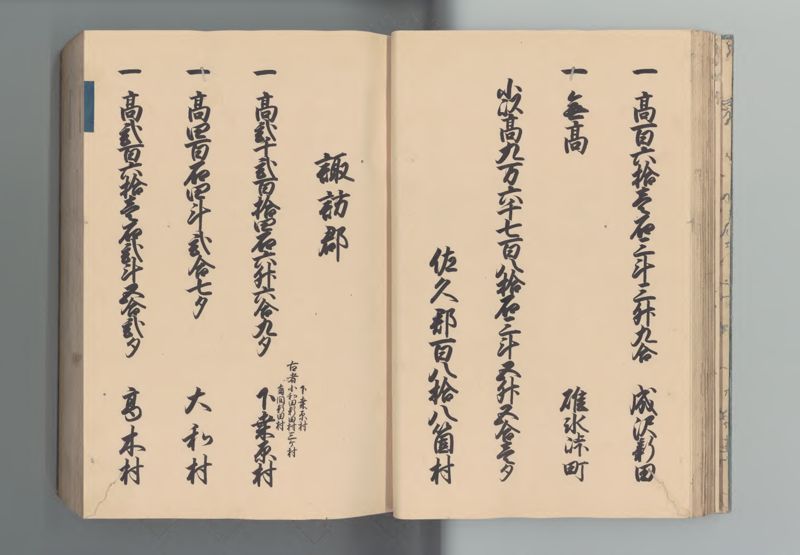 一 高百六拾壱石三斗三升九合 成沢新田
一 無高 碓氷峠町
小以高九万六千七百八拾石三斗五升五合壱夕
佐久郡百八拾八箇村
諏訪郡
一 高弐千弐百拾四石六升六合九夕 下桑原村
古者 下桑原村
小和田新田村三ヶ村
新田村
一 高四百石四斗弐合七夕 大和村
一 高弐百六拾壱石弐斗五合弐夕 高木村